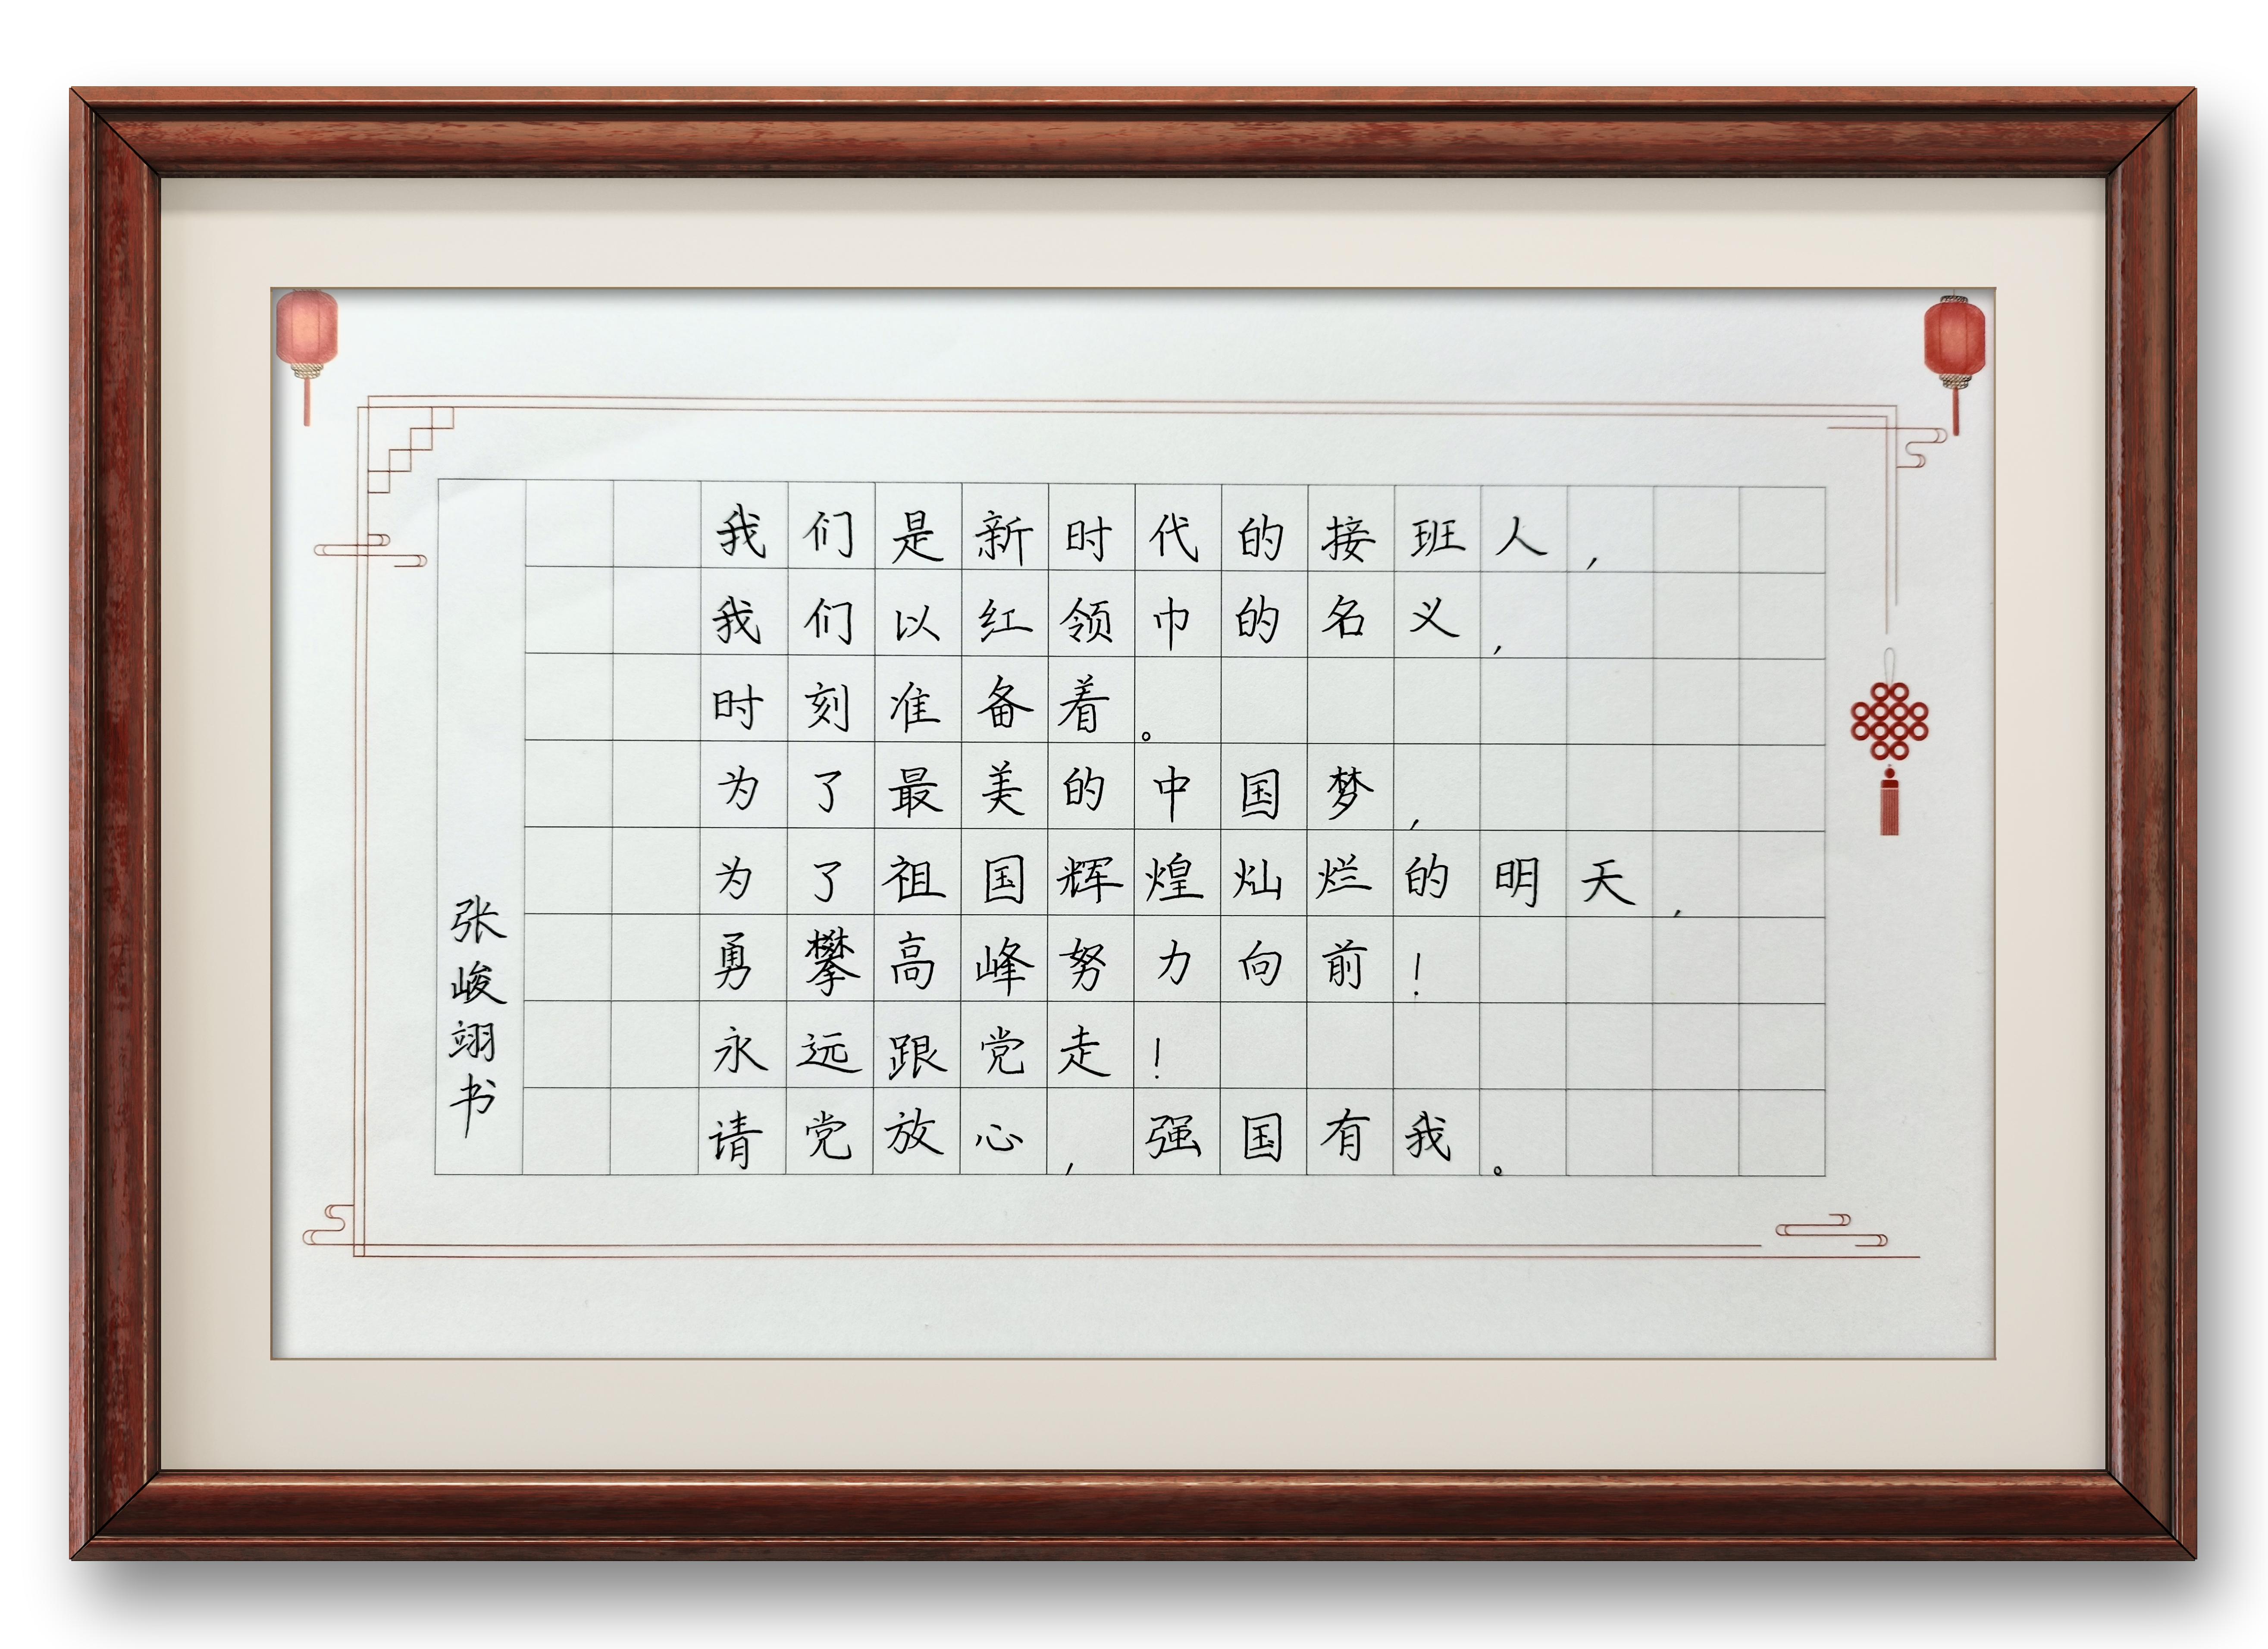 我们是新时代的接班人，
我们以红领巾的名义，
时刻准备着。
为了最美的中国梦，
为了祖国辉煌灿烂的明天，
勇攀高峰努力向前！
永远跟党走！
请党放心，强国有我。
张峻翊书